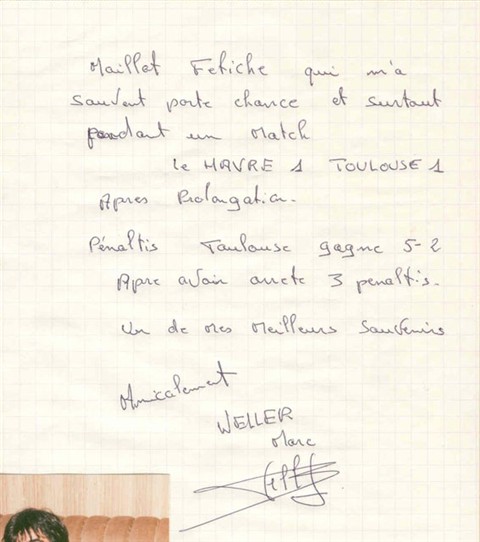 Maillot Fetiche qui m'a
souvent porte chance et surtout
pendant un Match
le HAVRE 1 TOULOUSE 1
Apres Prolongation.
Pénaltis Toulouse gagne 5-2
Apre avoir arrete 3 penaltis.
Un de mes Meilleurs Souvenirs
Amicalement
WELLER
Marc